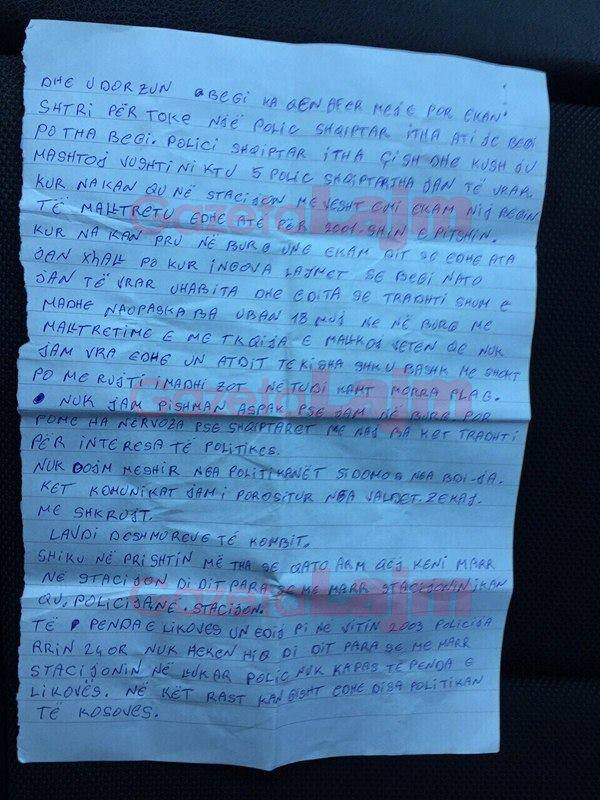 DHE U DORZUN BEGI KA QEN AFER MEJE POR EKAN
SHTRI PËR TOKE NJË POLIC SHQIPTAR ITHA ATI JE BEGI
PO THA BEGI. POLICI SHQIPTAR ITHA ÇISH DHE KUSH JU
MASHTOJ VUSHTI NI KTU 5 POLIC SHQIPTAR THA JAN TË VRAR.
KUR NA KAN QU NË STACIJON ME VESHT EMI EKAM NIJ BEGIN
TË MALLTRETU EDHE ATË PËR 2001-SHIN E PITSHIN.
KUR NA KAN PRU NË BURG UNE EKAM DIT SE EDHE ATA
JAN XHALL PO KUR INGOVA LAJMET SE BEGI NATO
JAN TË VRAR UHABITA DHE EDITA SE TRADHTI SHUM E
MADHE NAOPASKA BA UBAN 18 MUJ NE NË BURG ME
MALLTRETIME E ME TKQIJA E MALLKOJ VETEN QE NUK
JAM VRA EDHE UN ATDIT TE KISHA SHKU BASHK ME SHOKT
PO ME RUJTI IMADHI ZOT NË TUDI KAMT MORRA PLAG.
NUK JAM PISHMAN ASPAK PSE JAM NË BURG. POR
POME HA NERVOZA PSE SHQIPTARET ME NAJ BA KET TRADHTI
PËR INTERESA TË POLITIKES.
NUK DOJM MESHIR NGA POLITIKANËT SIDOMOS NGA BDI-JA.
KET KOMUNIKAT JAM I POROSITUR NGA VALDET. ZEKAJ.
ME SHKRUJT.
LAVDI DESHMOREVE TË KOMBIT.
SHIKU NË PRISHTIN MË THA SE QATO ARM QEJ KENI MARR
NË STACIJON DI DIT PARA SE ME MARR STACIJONIN IKAN
QU, POLICIJA NË. STACIJON.
TË PENDA E LIKOVES UN EDIJ PI NE VITIN 2003 POLICIJA
RRIN 24 OR NUK HEKEN HIQ DI DIT PARA SE ME MARR
STACIJONIN NË LUKAR POLIC NUK KAPAS TE PENDA E
LIKOVËS. NË KËT RAST KAN GISHT EDHE DISA POLITIKAN
TË KOSOVËS.
Gazeta Lajm
Gazeta Lajm
Gazeta Lajm